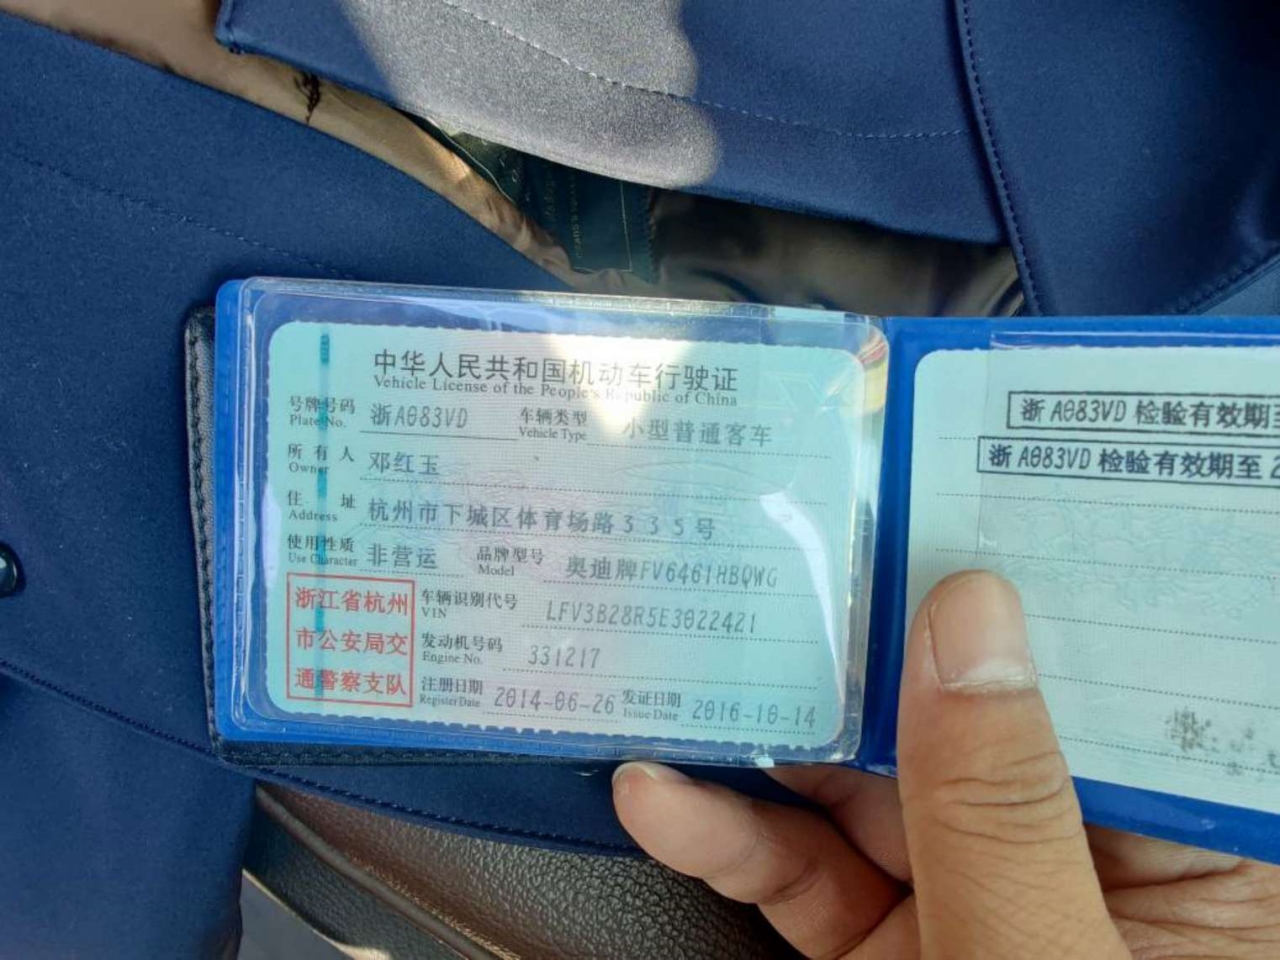 中华人民共和国机动车行驶证
Vehicle License of the People's Republic of China
号牌号码 浙A083VD 车辆类型 小型普通客车
Plate No. Vehicle Type
所有人 邓红玉
Owner
住址 杭州市下城区体育场路335号
Address
使用性质 非营运 品牌型号 奥迪牌FV6461HBQWG
Use Character Model
浙江省杭州 车辆识别代号 LFV3B28R5E3022421
VIN
市公安局交 发动机号码 331217
Engine No.
通警察支队 注册日期 2014-06-26 发证日期 2016-10-14
Register Date Issue Date
浙A083VD 检验有效期至
浙A083VD 检验有效期至 2